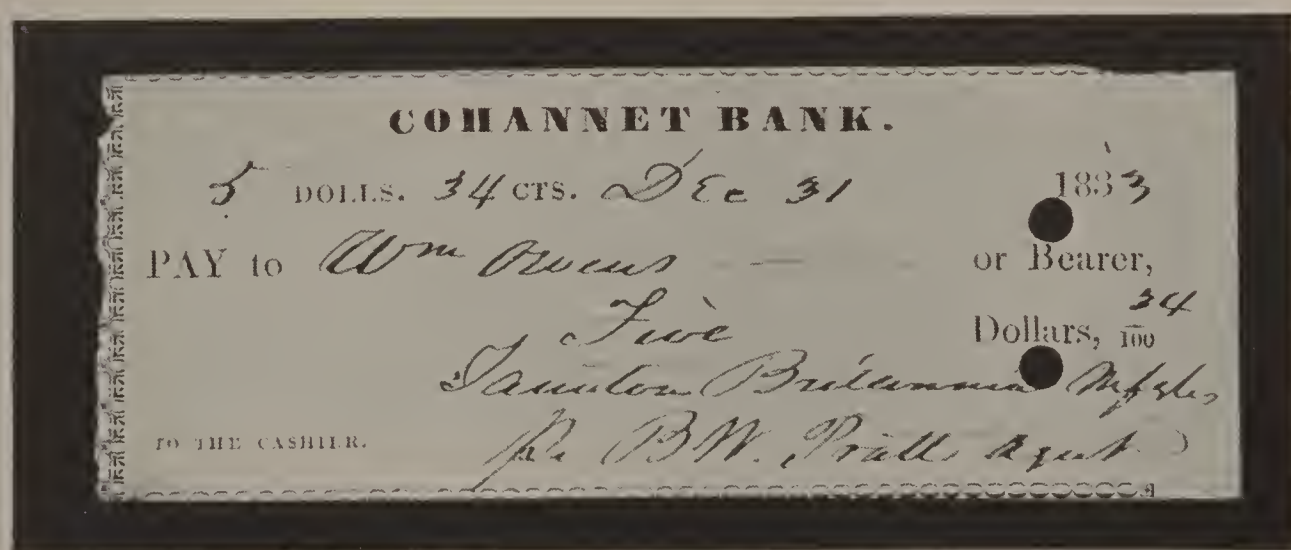 COHANNET BANK.
5 DOLLS. 34 CTS. Dec 31 1833
PAY to Wm Owens or Bearer,
Five Dollars, 34/100
Taunton Britannia Mfg
TO THE CASHIER. Pr B W. Pratt Agent